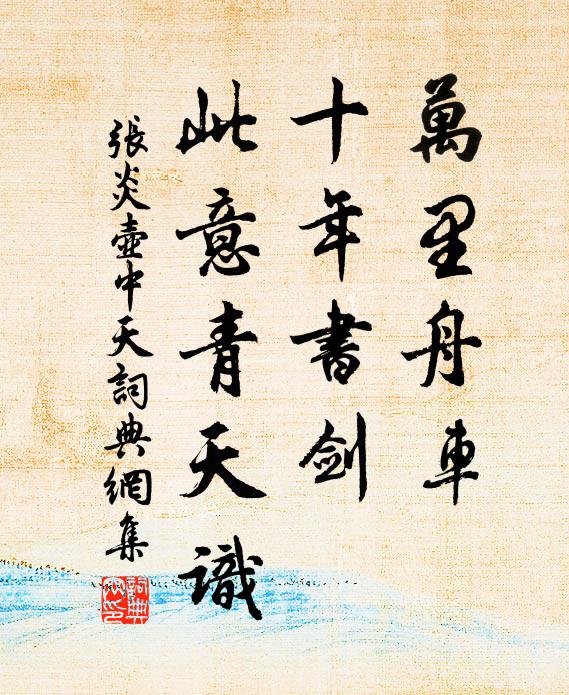 萬里舟車
十年書劍
此意青天識
張炎壺中天詞典網集